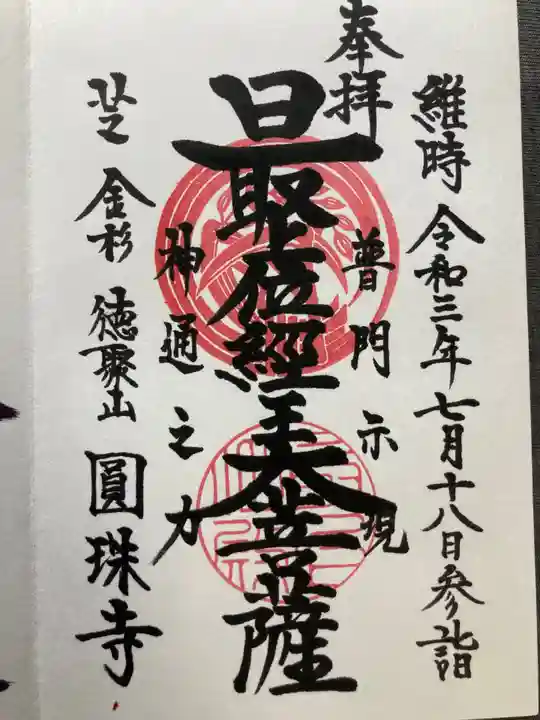 維時 令和三年七月十八日参詣
奉拝
普門示現
最上位經王大菩薩
神通之力
芝 金杉 徳聚山 圓珠寺